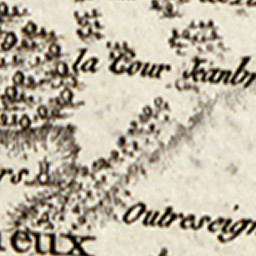 la Cour Jeanbr
rs
Outreseign
ieux